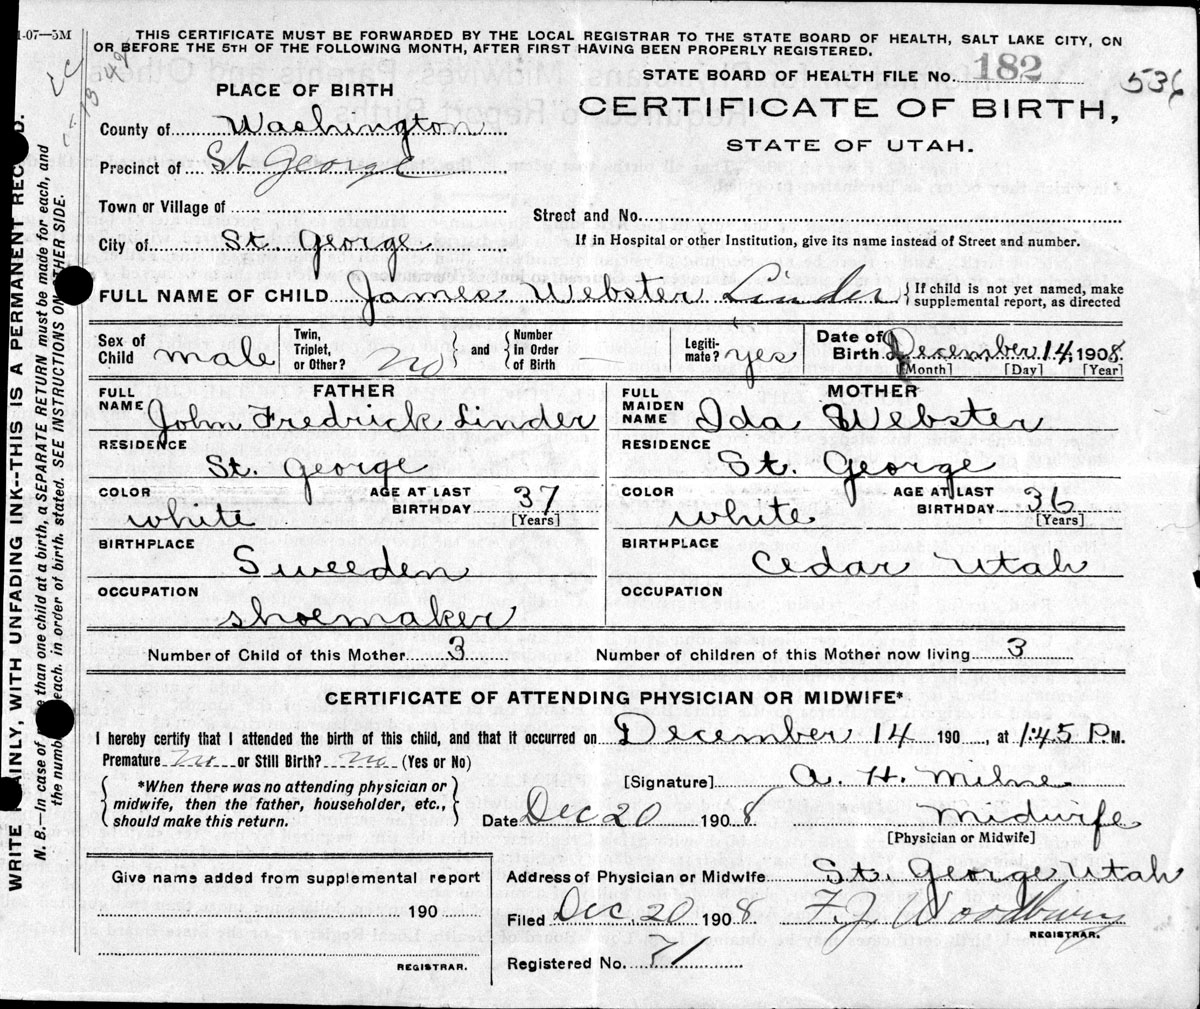 1-07—5M
THIS CERTIFICATE MUST BE FORWARDED BY THE LOCAL REGISTRAR TO THE STATE BOARD OF HEALTH, SALT LAKE CITY, ON
OR BEFORE THE 5TH OF THE FOLLOWING MONTH, AFTER FIRST HAVING BEEN PROPERLY REGISTERED.
STATE BOARD OF HEALTH FILE No. 182
536
PLACE OF BIRTH
CERTIFICATE OF BIRTH,
STATE OF UTAH.
County of Washington
Precinct of St George
Town or Village of
Street and No.
City of St. George
If in Hospital or other Institution, give its name instead of Street and number.
FULL NAME OF CHILD James Webster Linder
If child is not yet named, make
supplemental report, as directed
Sex of Child male
Twin, Triplet, or Other? no
and
Number In Order of Birth —
Legiti-mate? yes
Date of Birth December 14, 1908
[Month] [Day] [Year]
FATHER
FULL NAME John Fredrick Linder
RESIDENCE
St. George
COLOR white
AGE AT LAST BIRTHDAY 37
[Years]
BIRTHPLACE
Sweeden
OCCUPATION
shoemaker
MOTHER
FULL MAIDEN NAME Ida Webster
RESIDENCE
St. George
COLOR white
AGE AT LAST BIRTHDAY 36
[Years]
BIRTHPLACE
Cedar Utah
OCCUPATION
Number of Child of this Mother 3
Number of children of this Mother now living 3
CERTIFICATE OF ATTENDING PHYSICIAN OR MIDWIFE*
I hereby certify that I attended the birth of this child, and that it occurred on December 14 190 , at 1:45 P.M.
Premature no or Still Birth? no (Yes or No)
*When there was no attending physician or
midwife, then the father, householder, etc.,
should make this return.
[Signature] A. H. Milne
Date Dec 20 1908 Midwife
[Physician or Midwife]
Give name added from supplemental report
190
REGISTRAR.
Address of Physician or Midwife St. George Utah
Filed Dec 20 1908 F. J. Woodbury
REGISTRAR.
Registered No. 71
WRITE PLAINLY, WITH UNFADING INK--THIS IS A PERMANENT RECORD.
N. B.—In case of more than one child at a birth, a SEPARATE RETURN must be made for each, and
the number of each, in order of birth, stated. SEE INSTRUCTIONS ON OTHER SIDE.